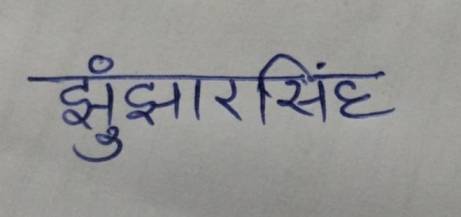 झुंझारसिंह